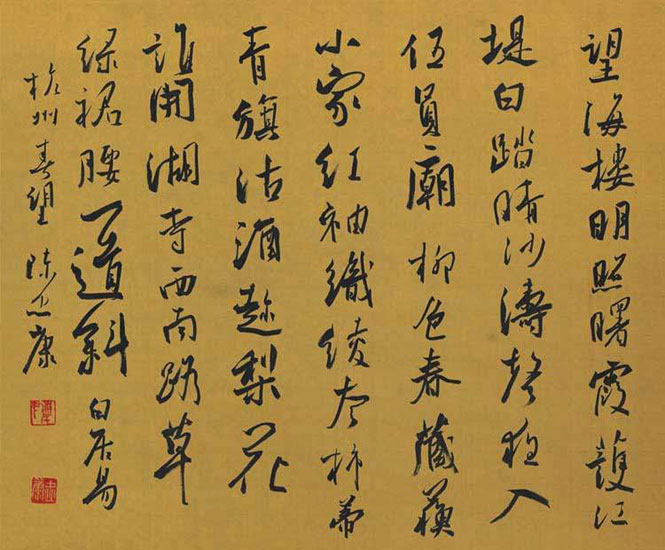 望海楼明照曙霞護江
堤白踏晴沙濤聲夜入
伍員廟柳色春藏蘇
小家红袖織綾夸柿蒂
青旗沽酒趁梨花
誰開湖寺西南路草
緑裙腰一道斜 白居易
杭州春望 陈忠康